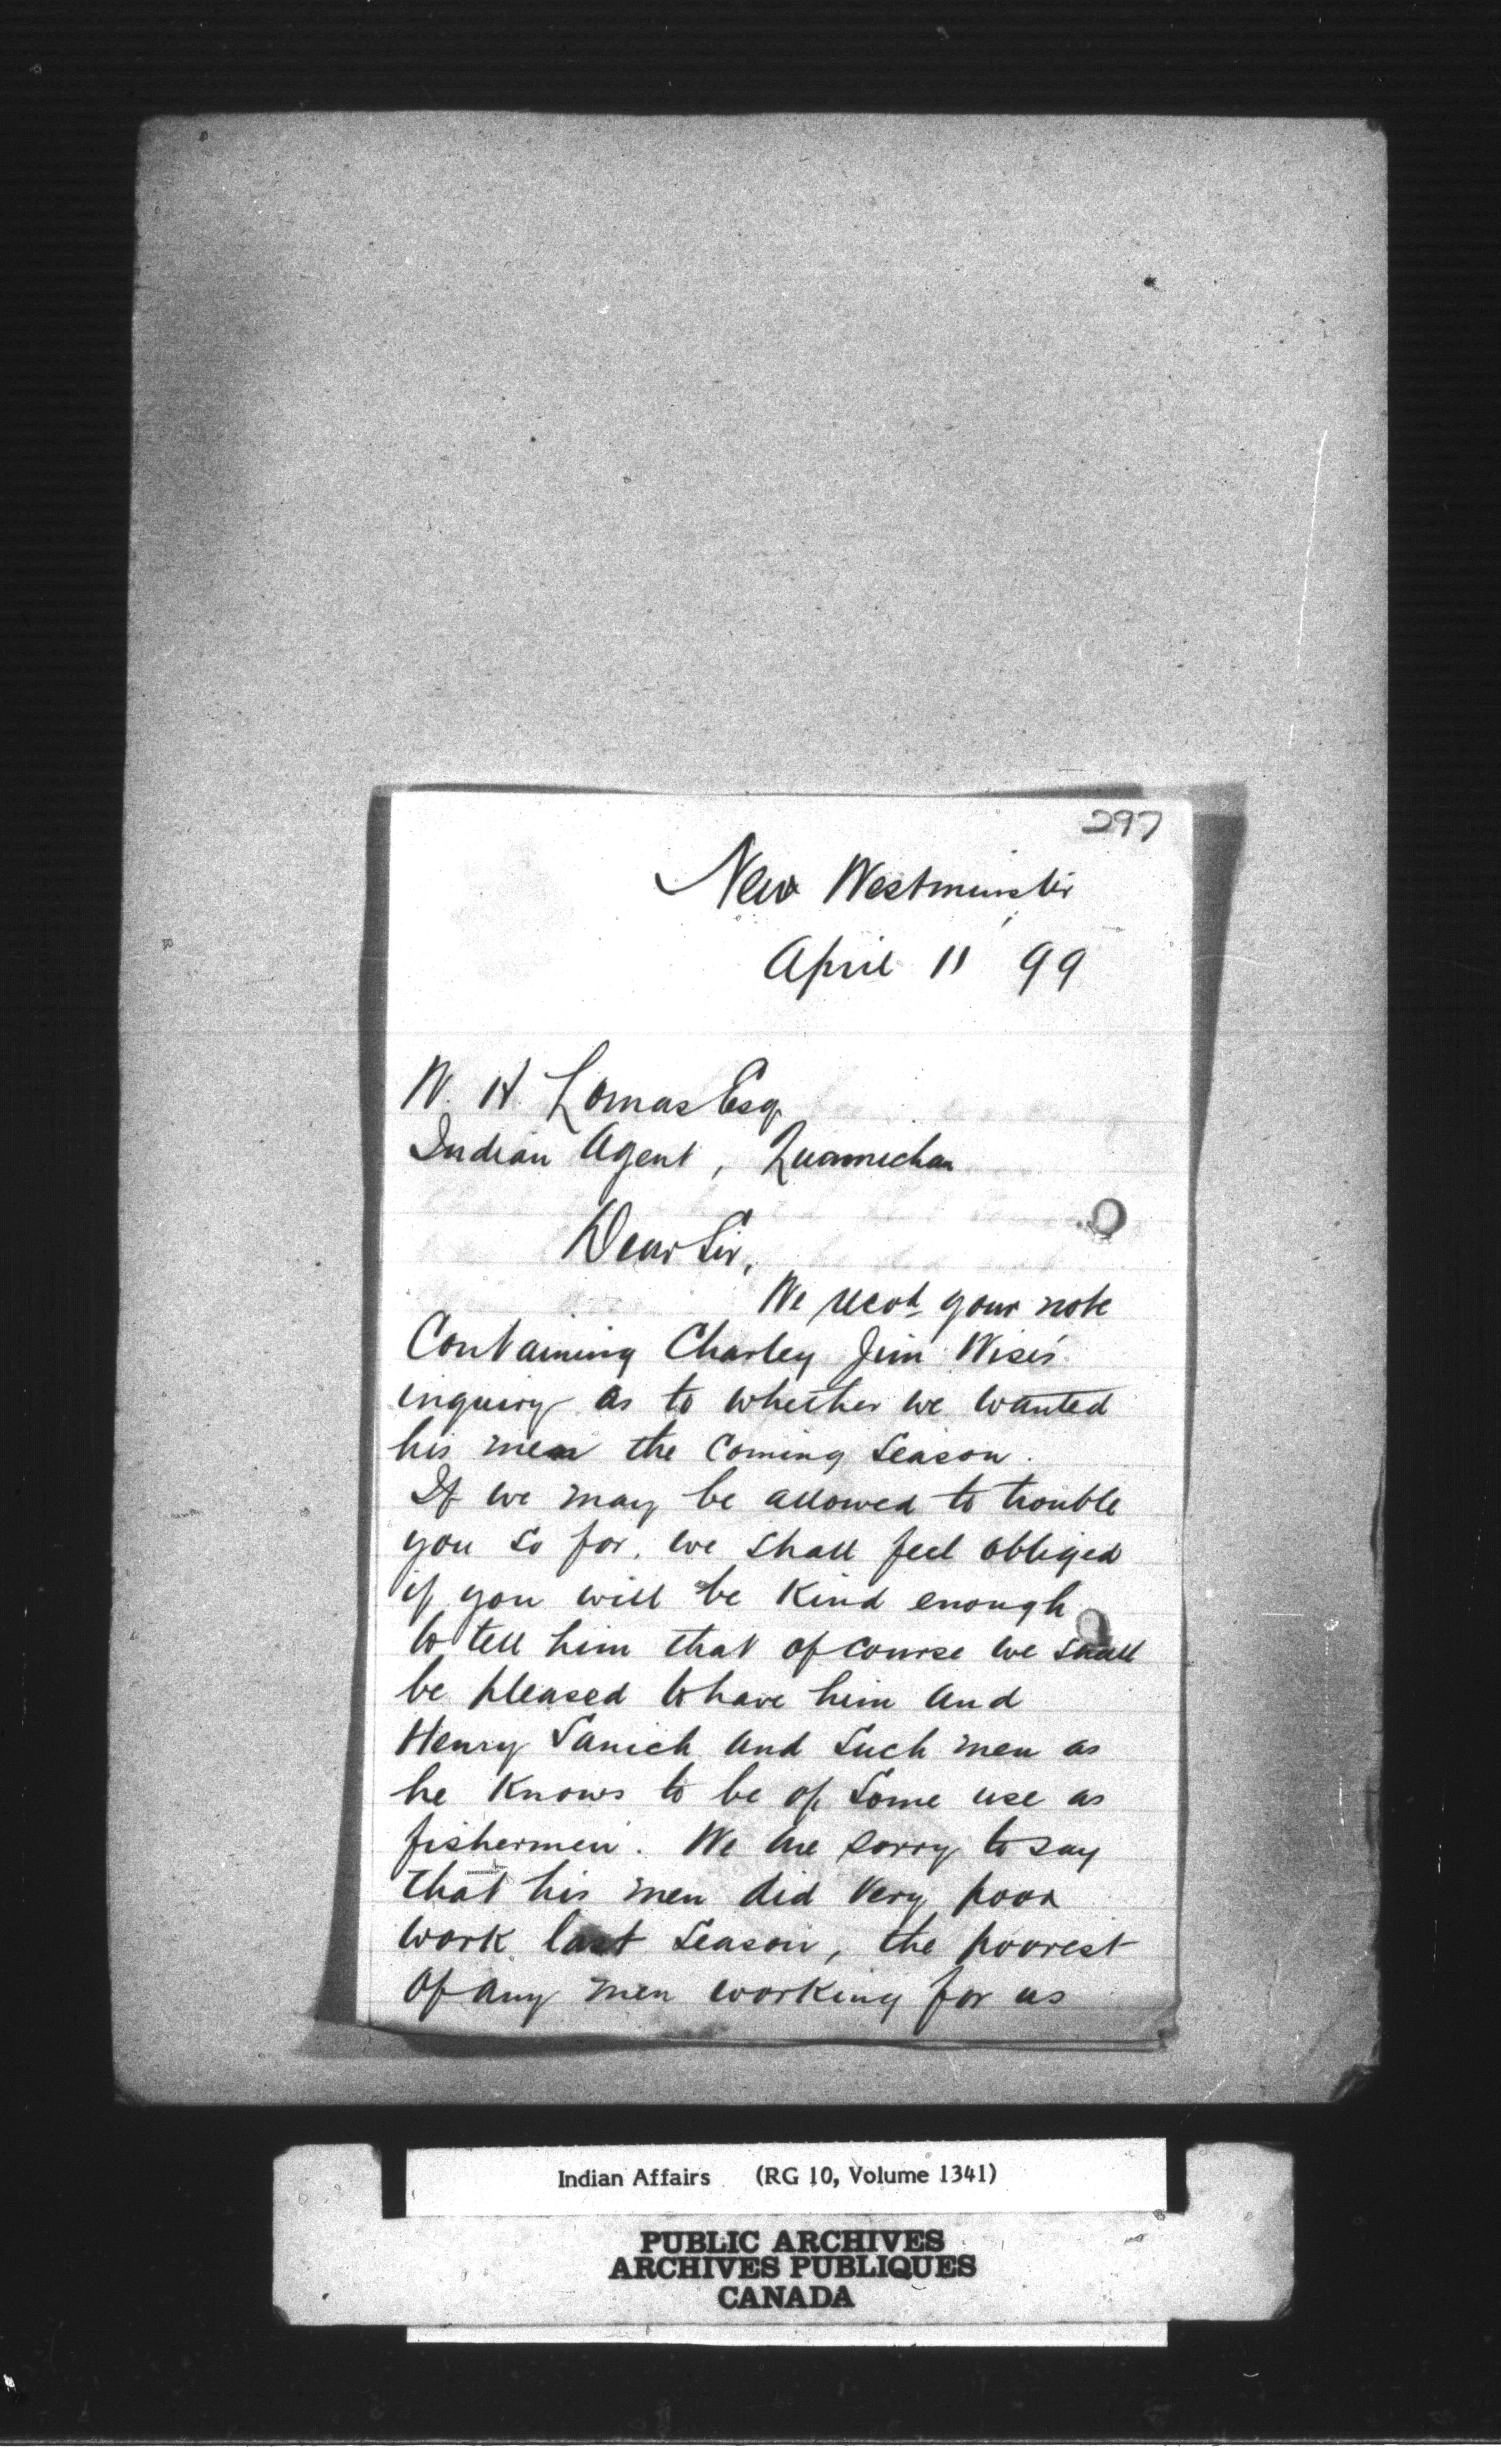 297
New Westminster
April 11 99
W. H. Lomas Esq.
Indian Agent, Quamichan
Dear Sir,
We recd your note
Containing Charley Jim Wise's
inquiry as to whether we wanted
his men the Coming Season.
If we may be allowed to trouble
you so far, we shall feel obliged
if you will be kind enough
to tell him that of course we shall
be pleased to have him and
Henry Sanich and such men as
he knows to be of some use as
fishermen. We are sorry to say
that his men did very poor
work last season, the poorest
of any men working for us
Indian Affairs (RG 10, Volume 1341)
PUBLIC ARCHIVES
ARCHIVES PUBLIQUES
CANADA